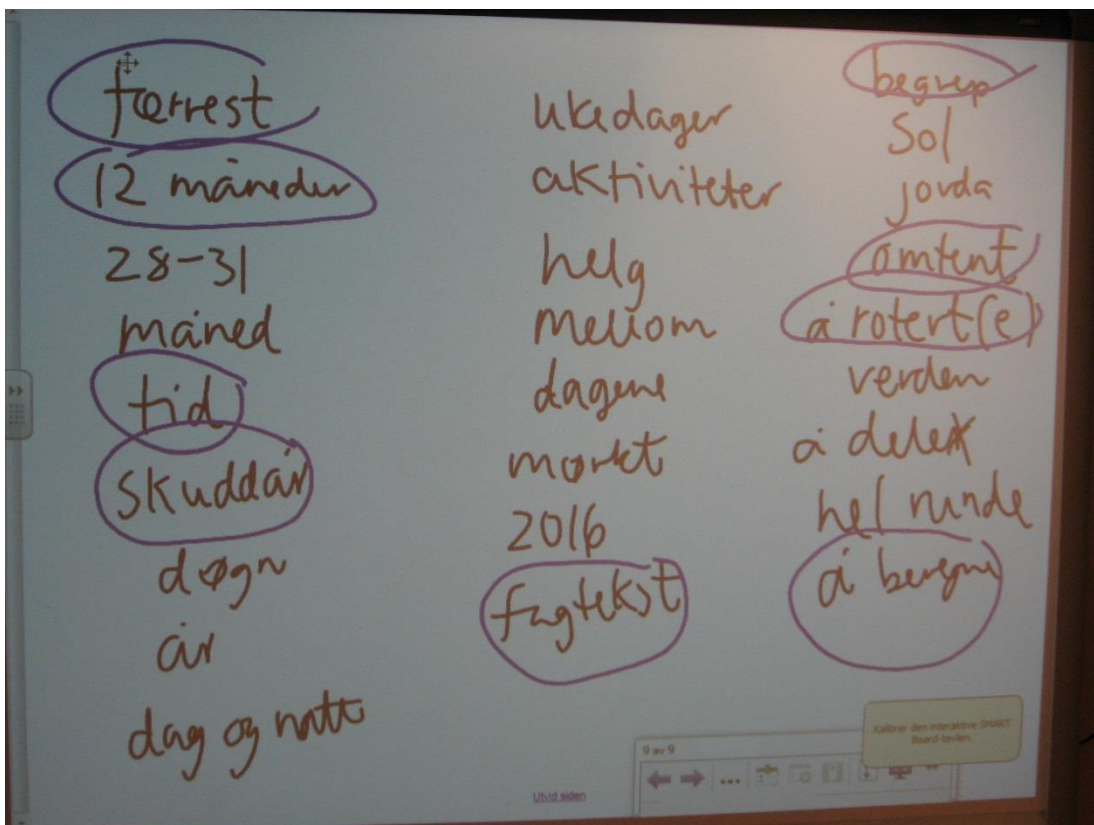 færrest
12 måneder
28-31
måned
tid
skuddår
døgn
år
dag og natt
ukedager
aktiviteter
helg
mellom
dagene
mørkt
2016
fagtekst
begrep
Sol
jorda
omtent
å rotert(e)
verden
å dele
hel runde
å beregne
9 av 9
Kalibrer den interaktive SMART
Board-tavlen.
Utvid siden